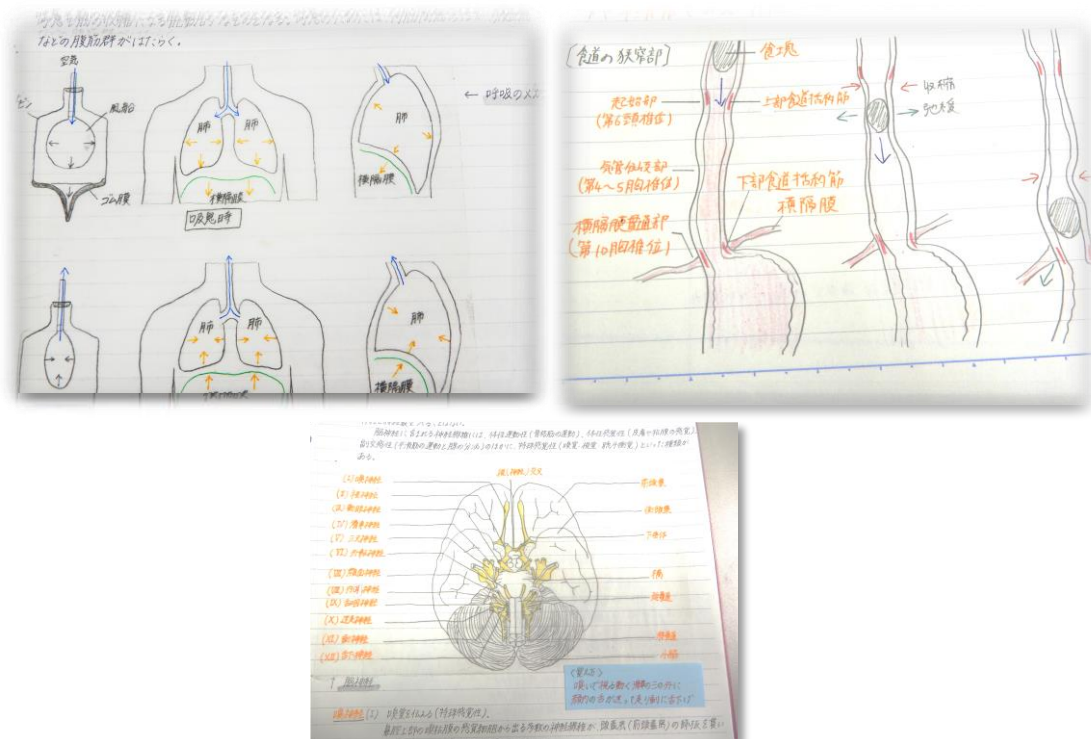 などの腹筋群がはたらく。
空気
ビン
風船
ゴム膜
肺
肺
横隔膜
吸息時
肺
横隔膜
← 呼吸のメカ
肺
肺
肺
横隔膜
[食道の狭窄部]
食塊
起始部
(第6頚椎位)
上部食道括約筋
気管分岐部
(第4〜5胸椎位)
下部食道括約筋
横隔膜
横隔膜貫通部
(第10胸椎位)
収縮
弛緩
脳神経に含まれる神経線維には、体性運動性(骨格筋の運動)、体性感覚性(皮膚や粘膜の感覚)
副交感性(平滑筋の運動と腺の分泌)のほかに、特殊感覚性(嗅覚・視覚・
ある。
(I) 嗅神経
(II) 視神経
(III) 動眼神経
(IV) 滑車神経
(V) 三叉神経
(VI) 外転神経
(VII) 顔面神経
(VIII) 内耳神経
(IX) 舌咽神経
(X) 迷走神経
(XI) 副神経
(XII) 舌下神経
視神経交叉
前頭葉
側頭葉
下垂体
橋
延髄
脊髄
小脳
↑ 脳神経
<覚え方>
嗅いで視る動く滑車の三の外に
顔内の舌が迷って走り副に舌下げ
嗅神経(I) 嗅覚を伝える(特殊感覚性)。
鼻腔上部の嗅粘膜の